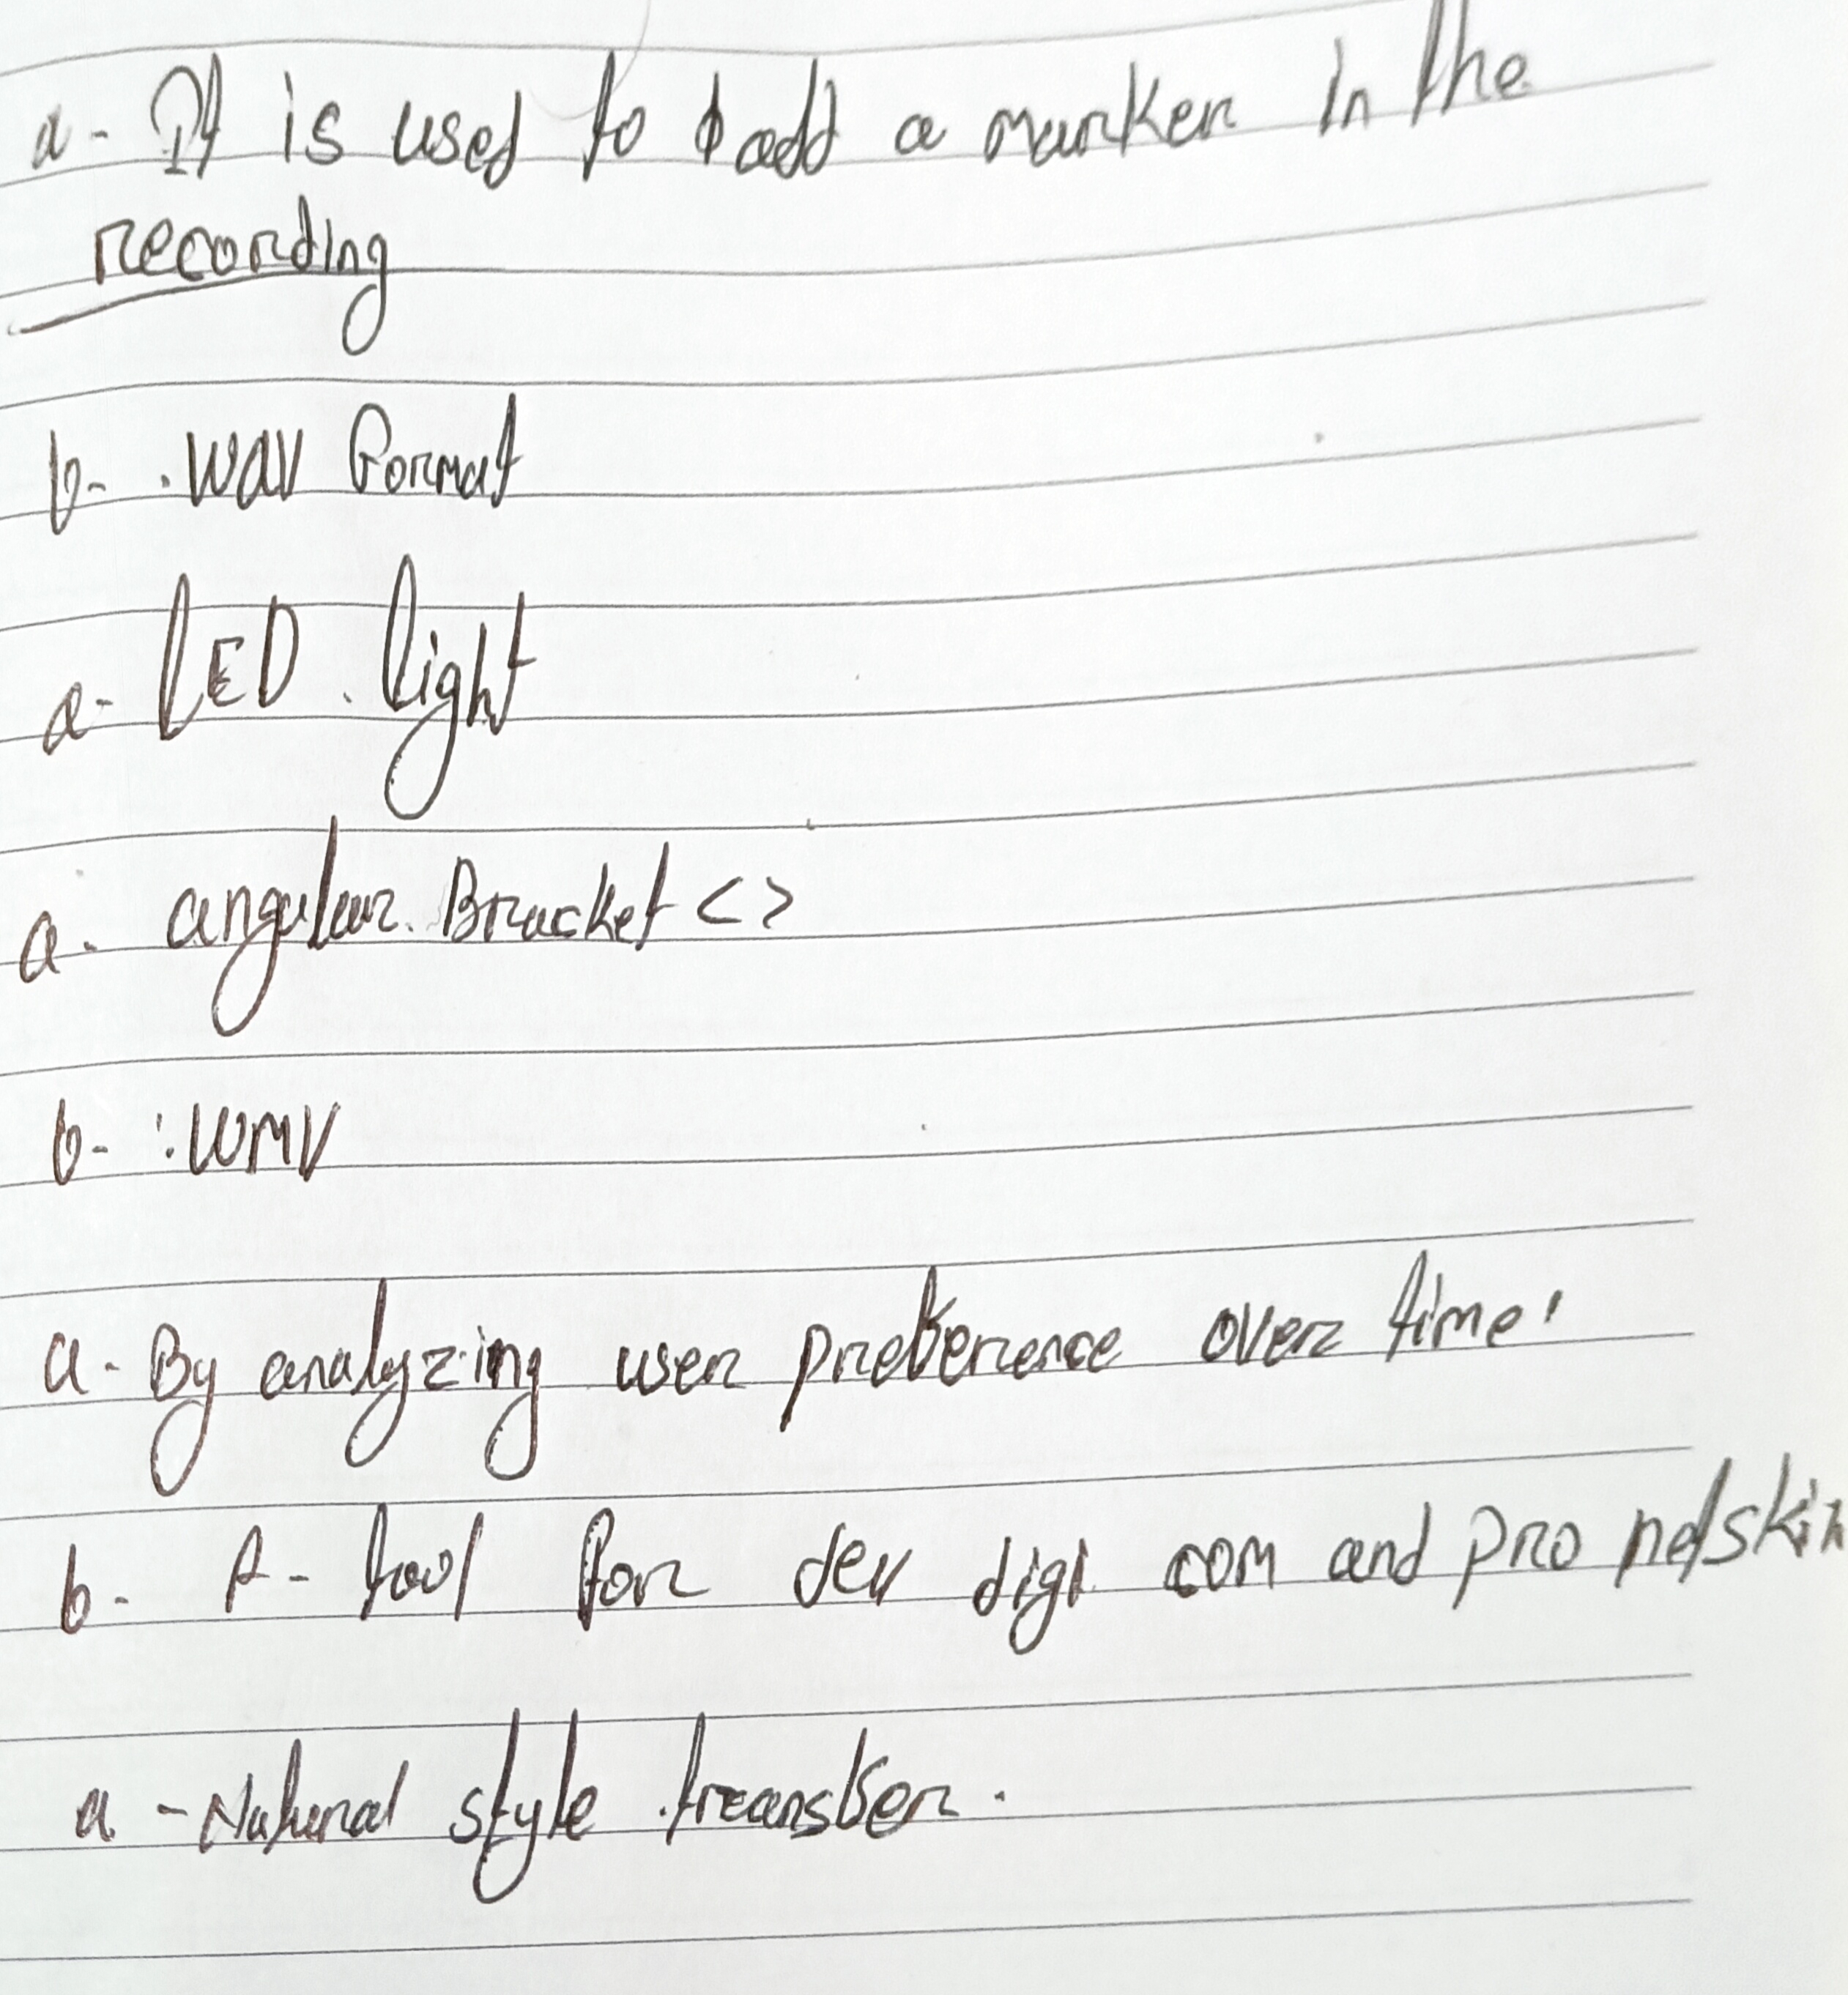 a- It is used to add a marker in the
recording
b- .wav format
a- LED light
a- angular Bracket < >
b- .WMV
a- By analyzing user preference over time.
b- A- tool for dev digi com and pro netskin
a - Natural style transfer.